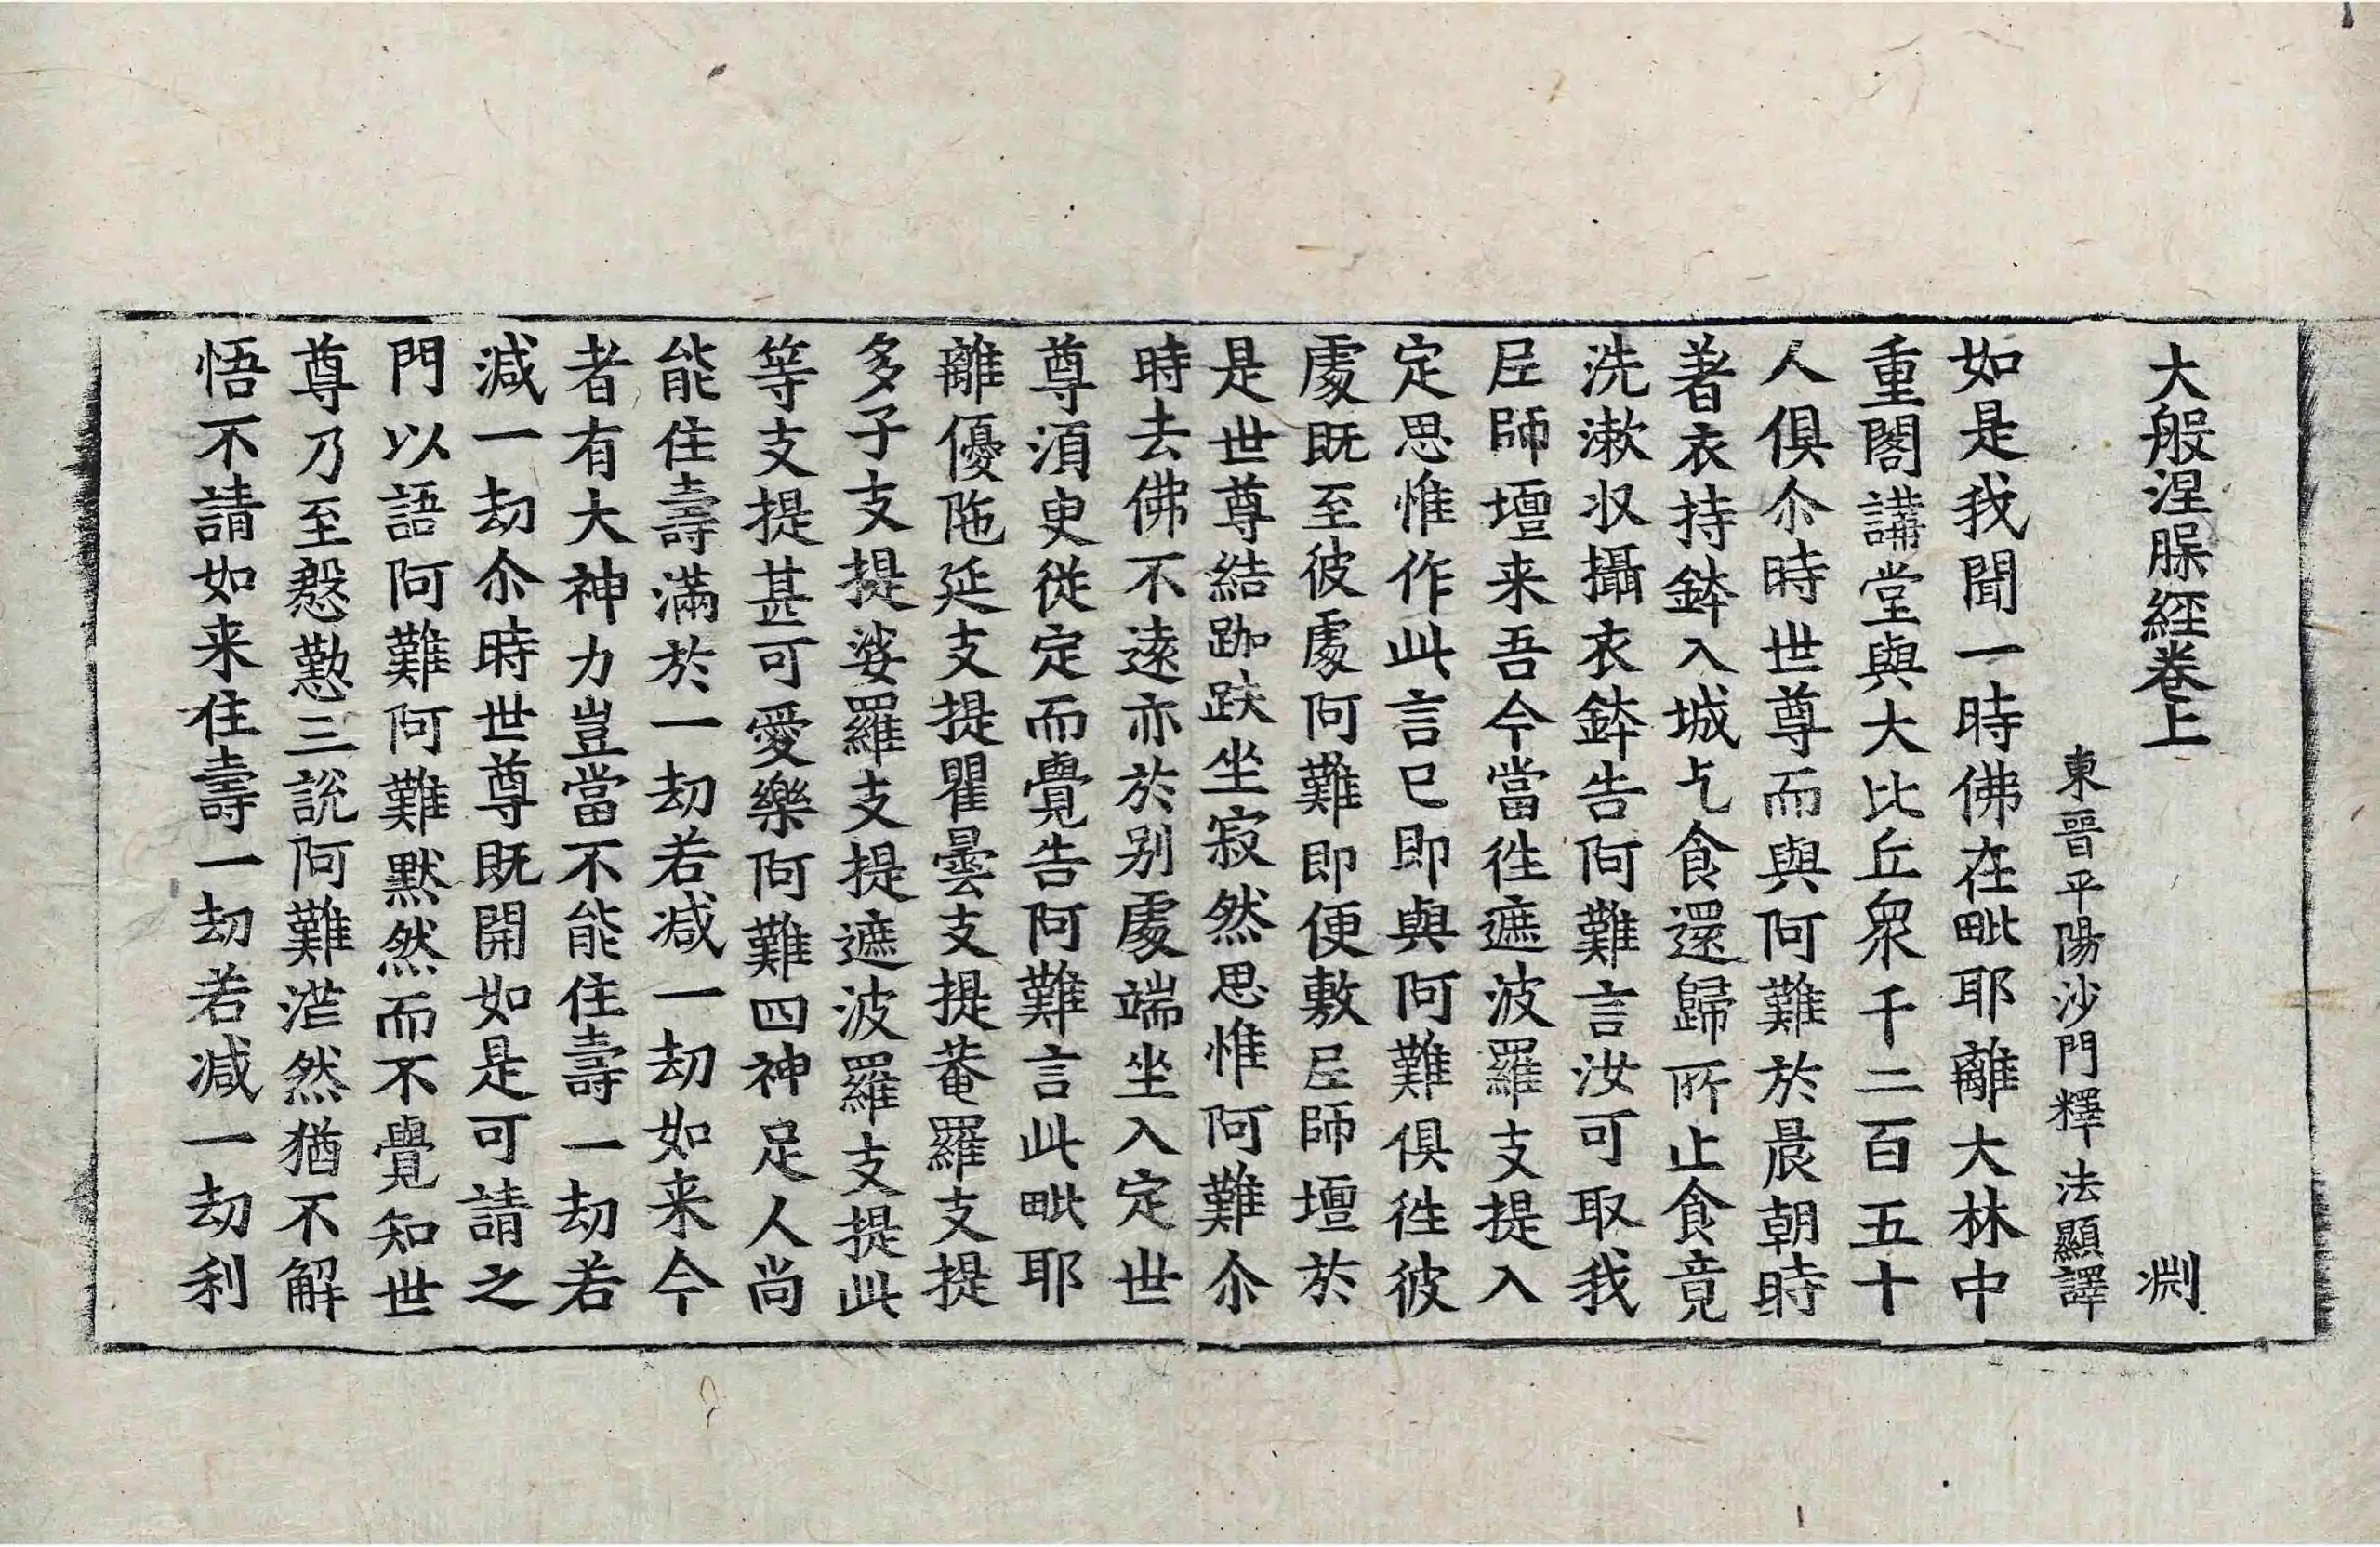 大般涅槃經卷上 渕
東晉平陽沙門釋法顯譯
如是我聞一時佛在毗耶離大林中
重閣講堂與大比丘衆千二百五十
人俱尒時世尊而與阿難於晨朝時
著衣持鉢入城乞食還歸所止食竟
洗漱収攝衣鉢告阿難言汝可取我
尼師壇来吾今當徃遮波羅支提入
定思惟作此言已即與阿難俱徃彼
處既至彼處阿難即便敷尼師壇於
是世尊結跏趺坐寂然思惟阿難尒
時去佛不遠亦於别處端坐入定世
尊湏臾從定而覺告阿難言此毗耶
離優陁延支提瞿曇支提菴羅支提
多子支提娑羅支提遮波羅支提此
等支提甚可愛樂阿難四神足人尚
能住壽滿於一劫若减一劫如来今
者有大神力豈當不能住壽一劫若
减一劫尒時世尊既開如是可請之
門以語阿難阿難默然而不覺知世
尊乃至慇懃三說阿難茫然猶不解
悟不請如来住壽一劫若减一劫利